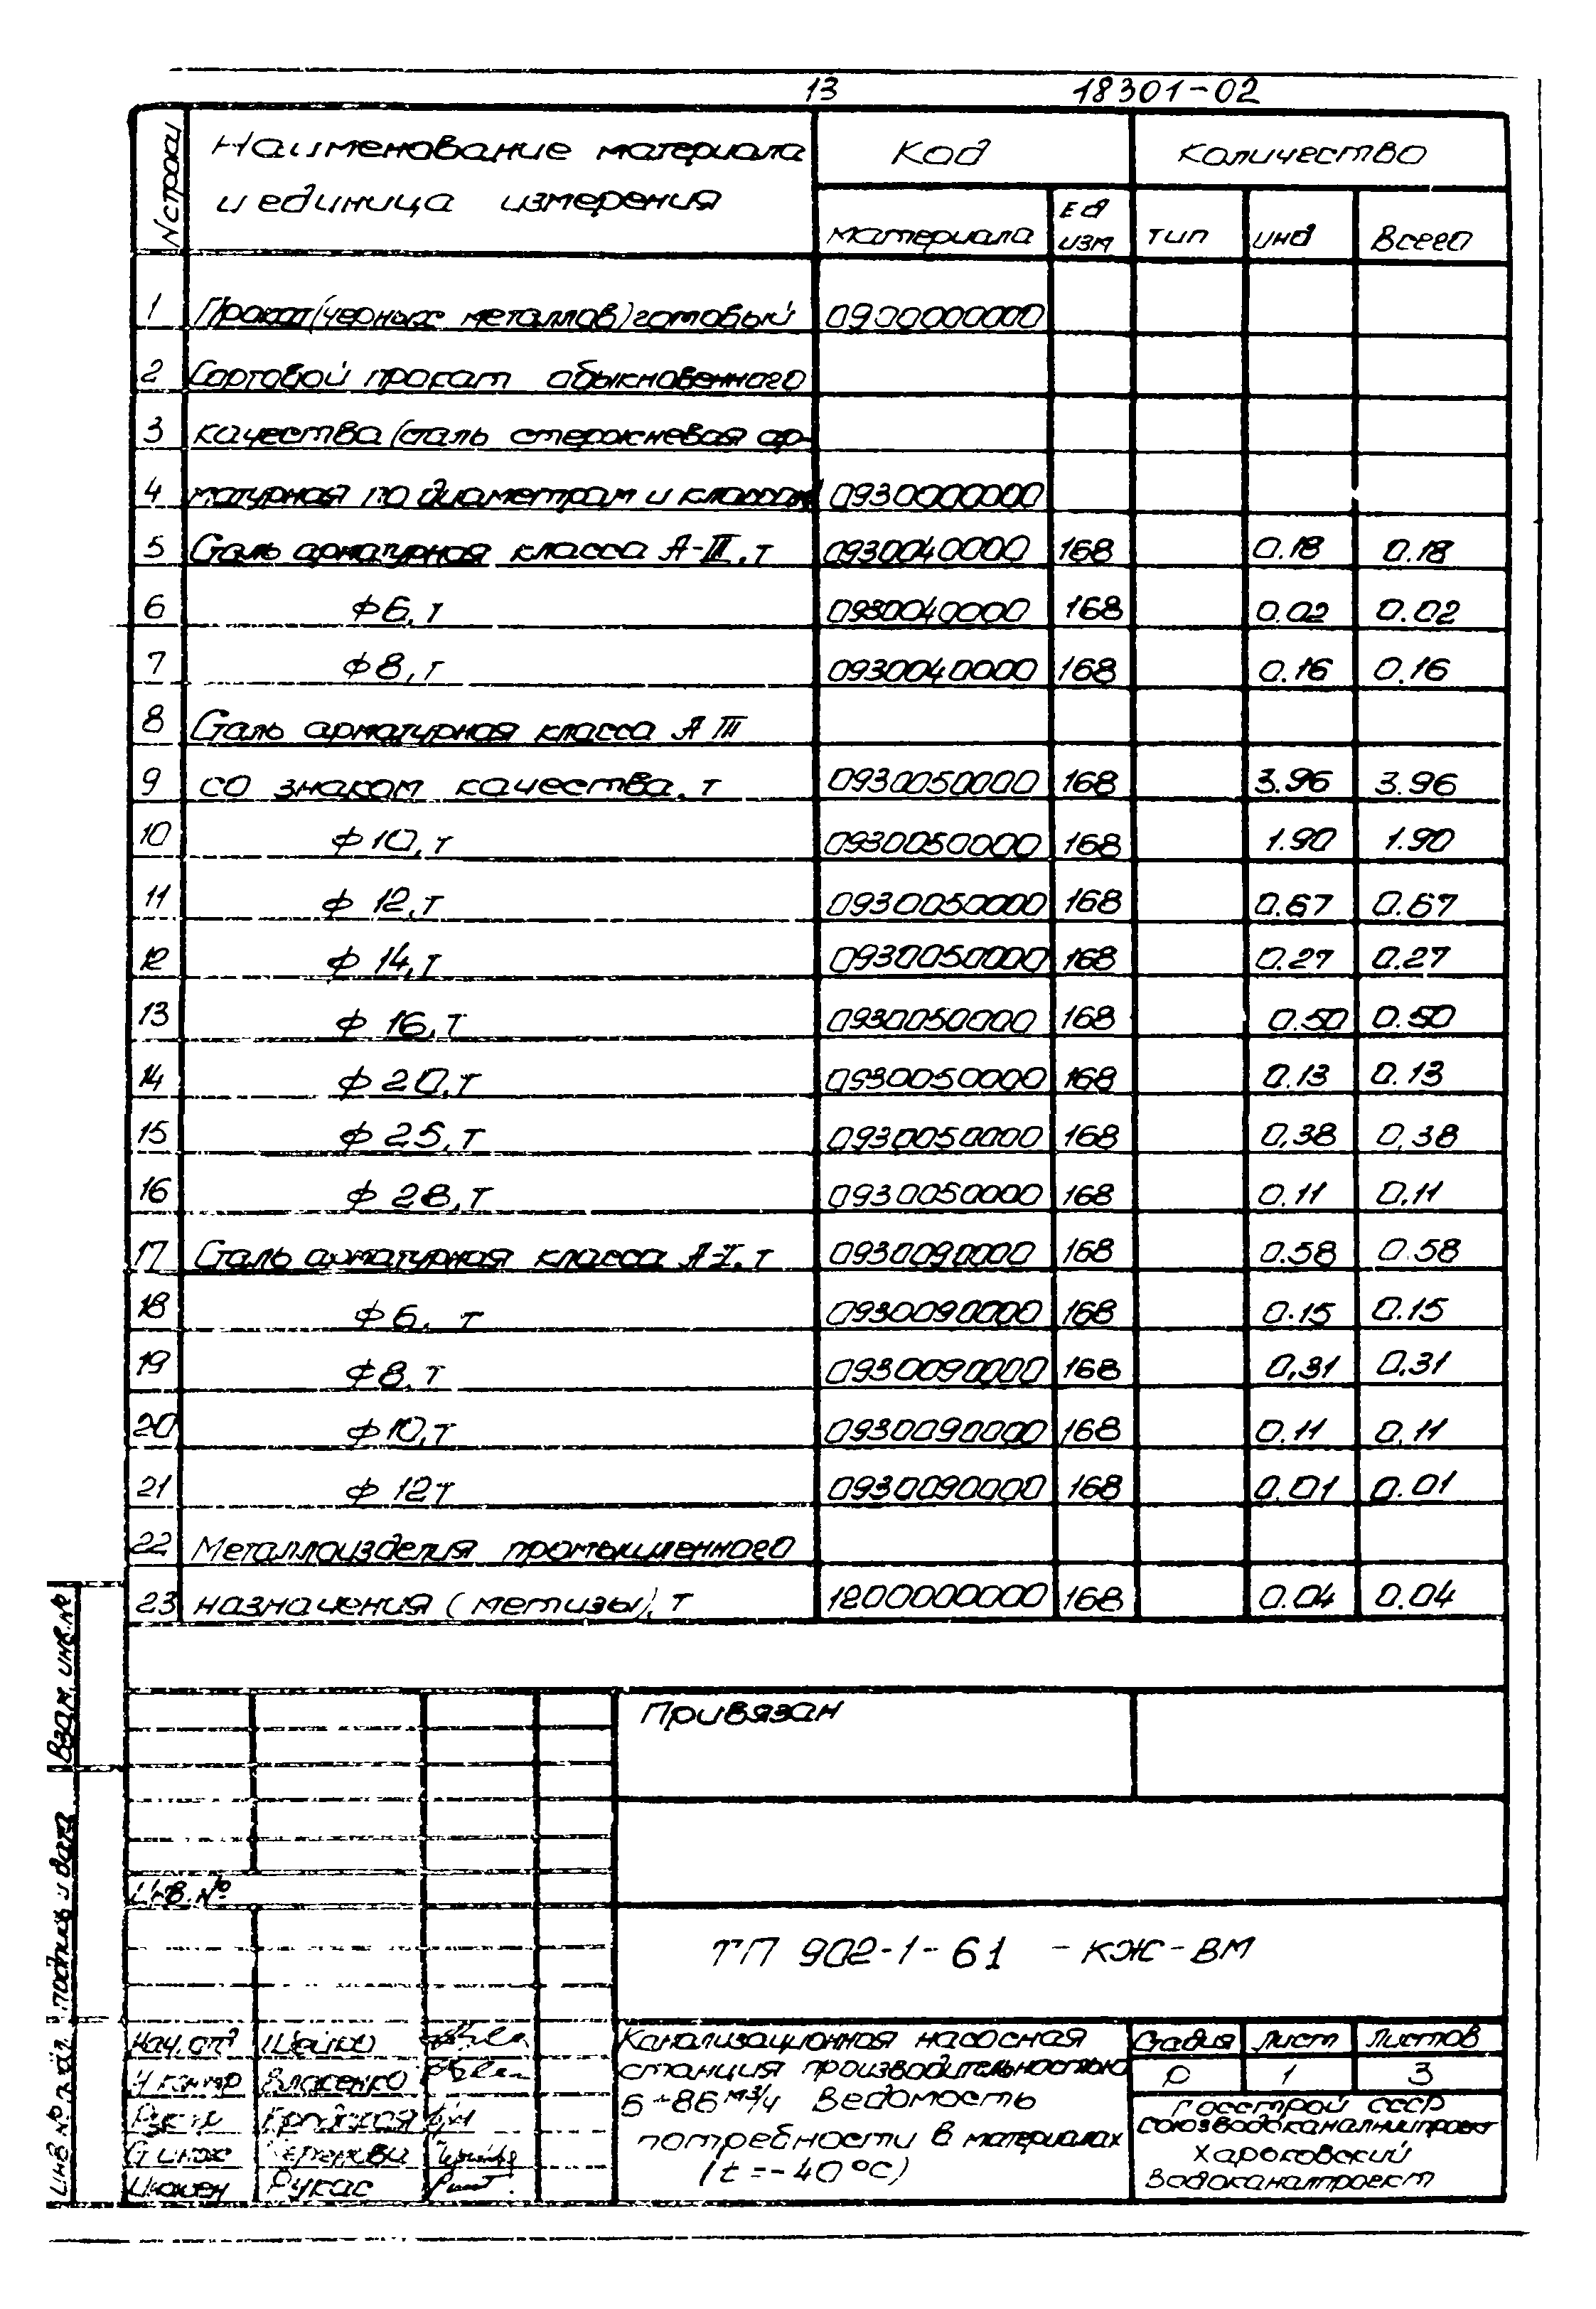 13 18301-02
N строки Наименование материала Код Количество
и единица измерения
материала Ед изм тип инд Всего
1 Прокат (черных металлов) готовый 0900000000
2 Сортовой прокат обыкновенного
3 качества (сталь стержневая ар-
4 матурная по диаметрам и классам) 0930000000
5 Сталь арматурная класса А-III, т 0930040000 168 0.18 0.18
6 ф6, т 0930040000 168 0.02 0.02
7 ф8, т 0930040000 168 0.16 0.16
8 Сталь арматурная класса А III
9 со знаком качества, т 0930050000 168 3.96 3.96
10 ф10, т 0930050000 168 1.90 1.90
11 ф 12, т 0930050000 168 0.67 0.67
12 ф 14, т 0930050000 168 0.27 0.27
13 ф 16, т 0930050000 168 0.50 0.50
14 ф 20, т 0930050000 168 0.13 0.13
15 ф 25, т 0930050000 168 0,38 0,38
16 ф 28, т 0930050000 168 0.11 0.11
17 Сталь арматурная класса А-I, т 0930090000 168 0.58 0.58
18 ф6, т 0930090000 168 0.15 0.15
19 ф8, т 0930090000 168 0,31 0,31
20 ф10, т 0930090000 168 0.11 0.11
21 ф 12т 0930090000 168 0.01 0.01
22 Металлоизделия промышленного
23 назначения (метизы), т 1200000000 168 0.04 0.04
Взам. инв.№
Подпись и дата
Инв № подл
Привязан
Инв.№
ТП 902-1-61 -КЖ-ВМ
Нач.отд
Н.контр Власенко
Инжен Рукас
Канализационная насосная
станция производительностью
м³/ч Ведомость
потребности в материалах
(t=-40°С)
Стадия лист листов
Р 1 3
Госстрой СССР
Союзводоканалниипроект
Харьковский
Водоканалпроект